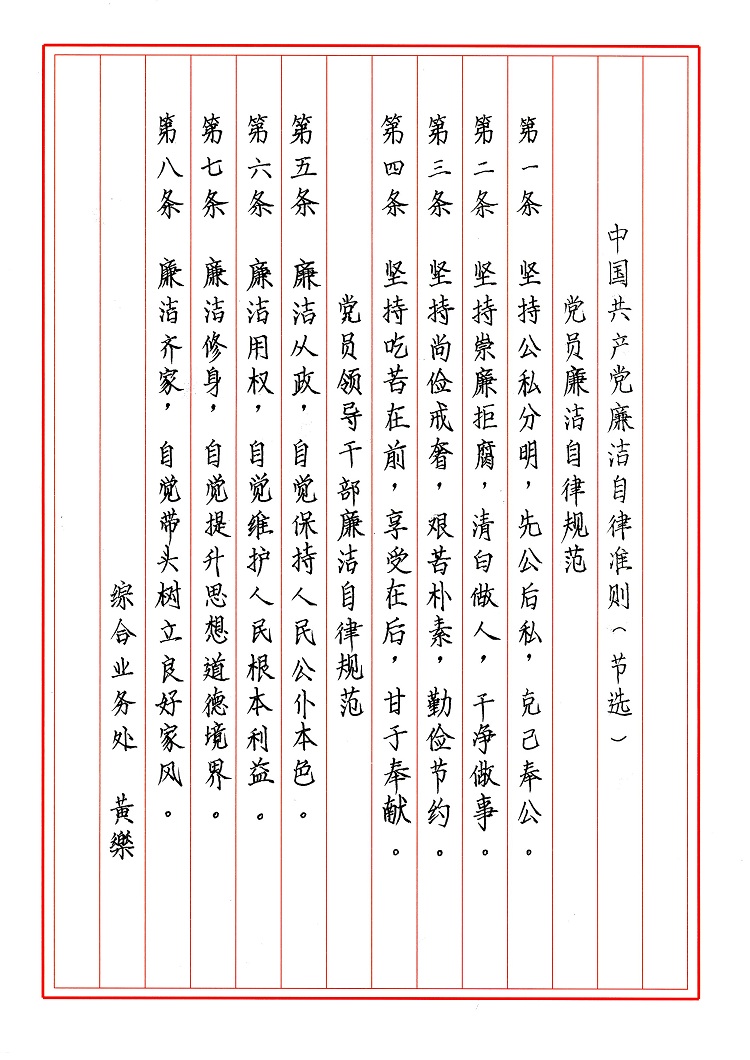 中国共产党廉洁自律准则（节选）
党员廉洁自律规范
第一条 坚持公私分明，先公后私，克己奉公。
第二条 坚持崇廉拒腐，清白做人，干净做事。
第三条 坚持尚俭戒奢，艰苦朴素，勤俭节约。
第四条 坚持吃苦在前，享受在后，甘于奉献。
党员领导干部廉洁自律规范
第五条 廉洁从政，自觉保持人民公仆本色。
第六条 廉洁用权，自觉维护人民根本利益。
第七条 廉洁修身，自觉提升思想道德境界。
第八条 廉洁齐家，自觉带头树立良好家风。
综合业务处 黄樂